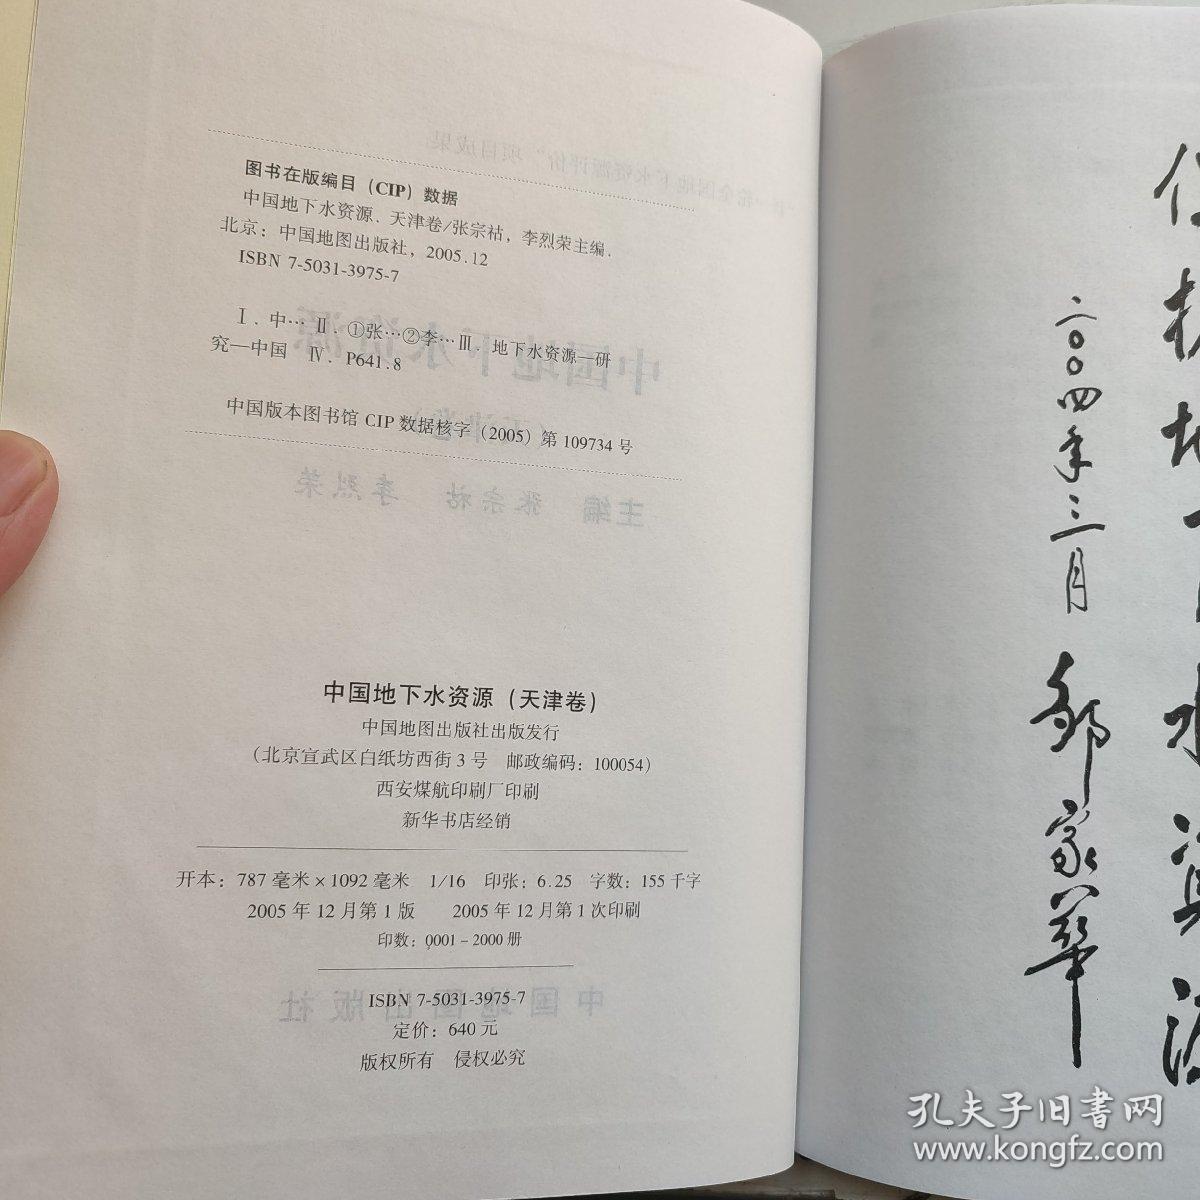 图书在版编目（CIP）数据
中国地下水资源．天津卷/张宗祜，李烈荣主编．
北京：中国地图出版社，2005.12
ISBN 7-5031-3975-7
Ⅰ．中… Ⅱ．①张…②李…Ⅲ．地下水资源—研
究—中国 Ⅳ．P641.8
中国版本图书馆 CIP 数据核字（2005）第 109734 号
中国地下水资源（天津卷）
中国地图出版社出版发行
（北京宣武区白纸坊西街 3 号 邮政编码：100054）
西安煤航印刷厂印刷
新华书店经销
开本：787 毫米×1092 毫米 1/16 印张：6.25 字数：155 千字
2005 年 12 月第 1 版 2005 年 12 月第 1 次印刷
印数：0001－2000 册
ISBN 7-5031-3975-7
定价：640 元
版权所有 侵权必究
地下水资源
二〇〇四年三月 邹家华
孔夫子旧书网
www.kongfz.com